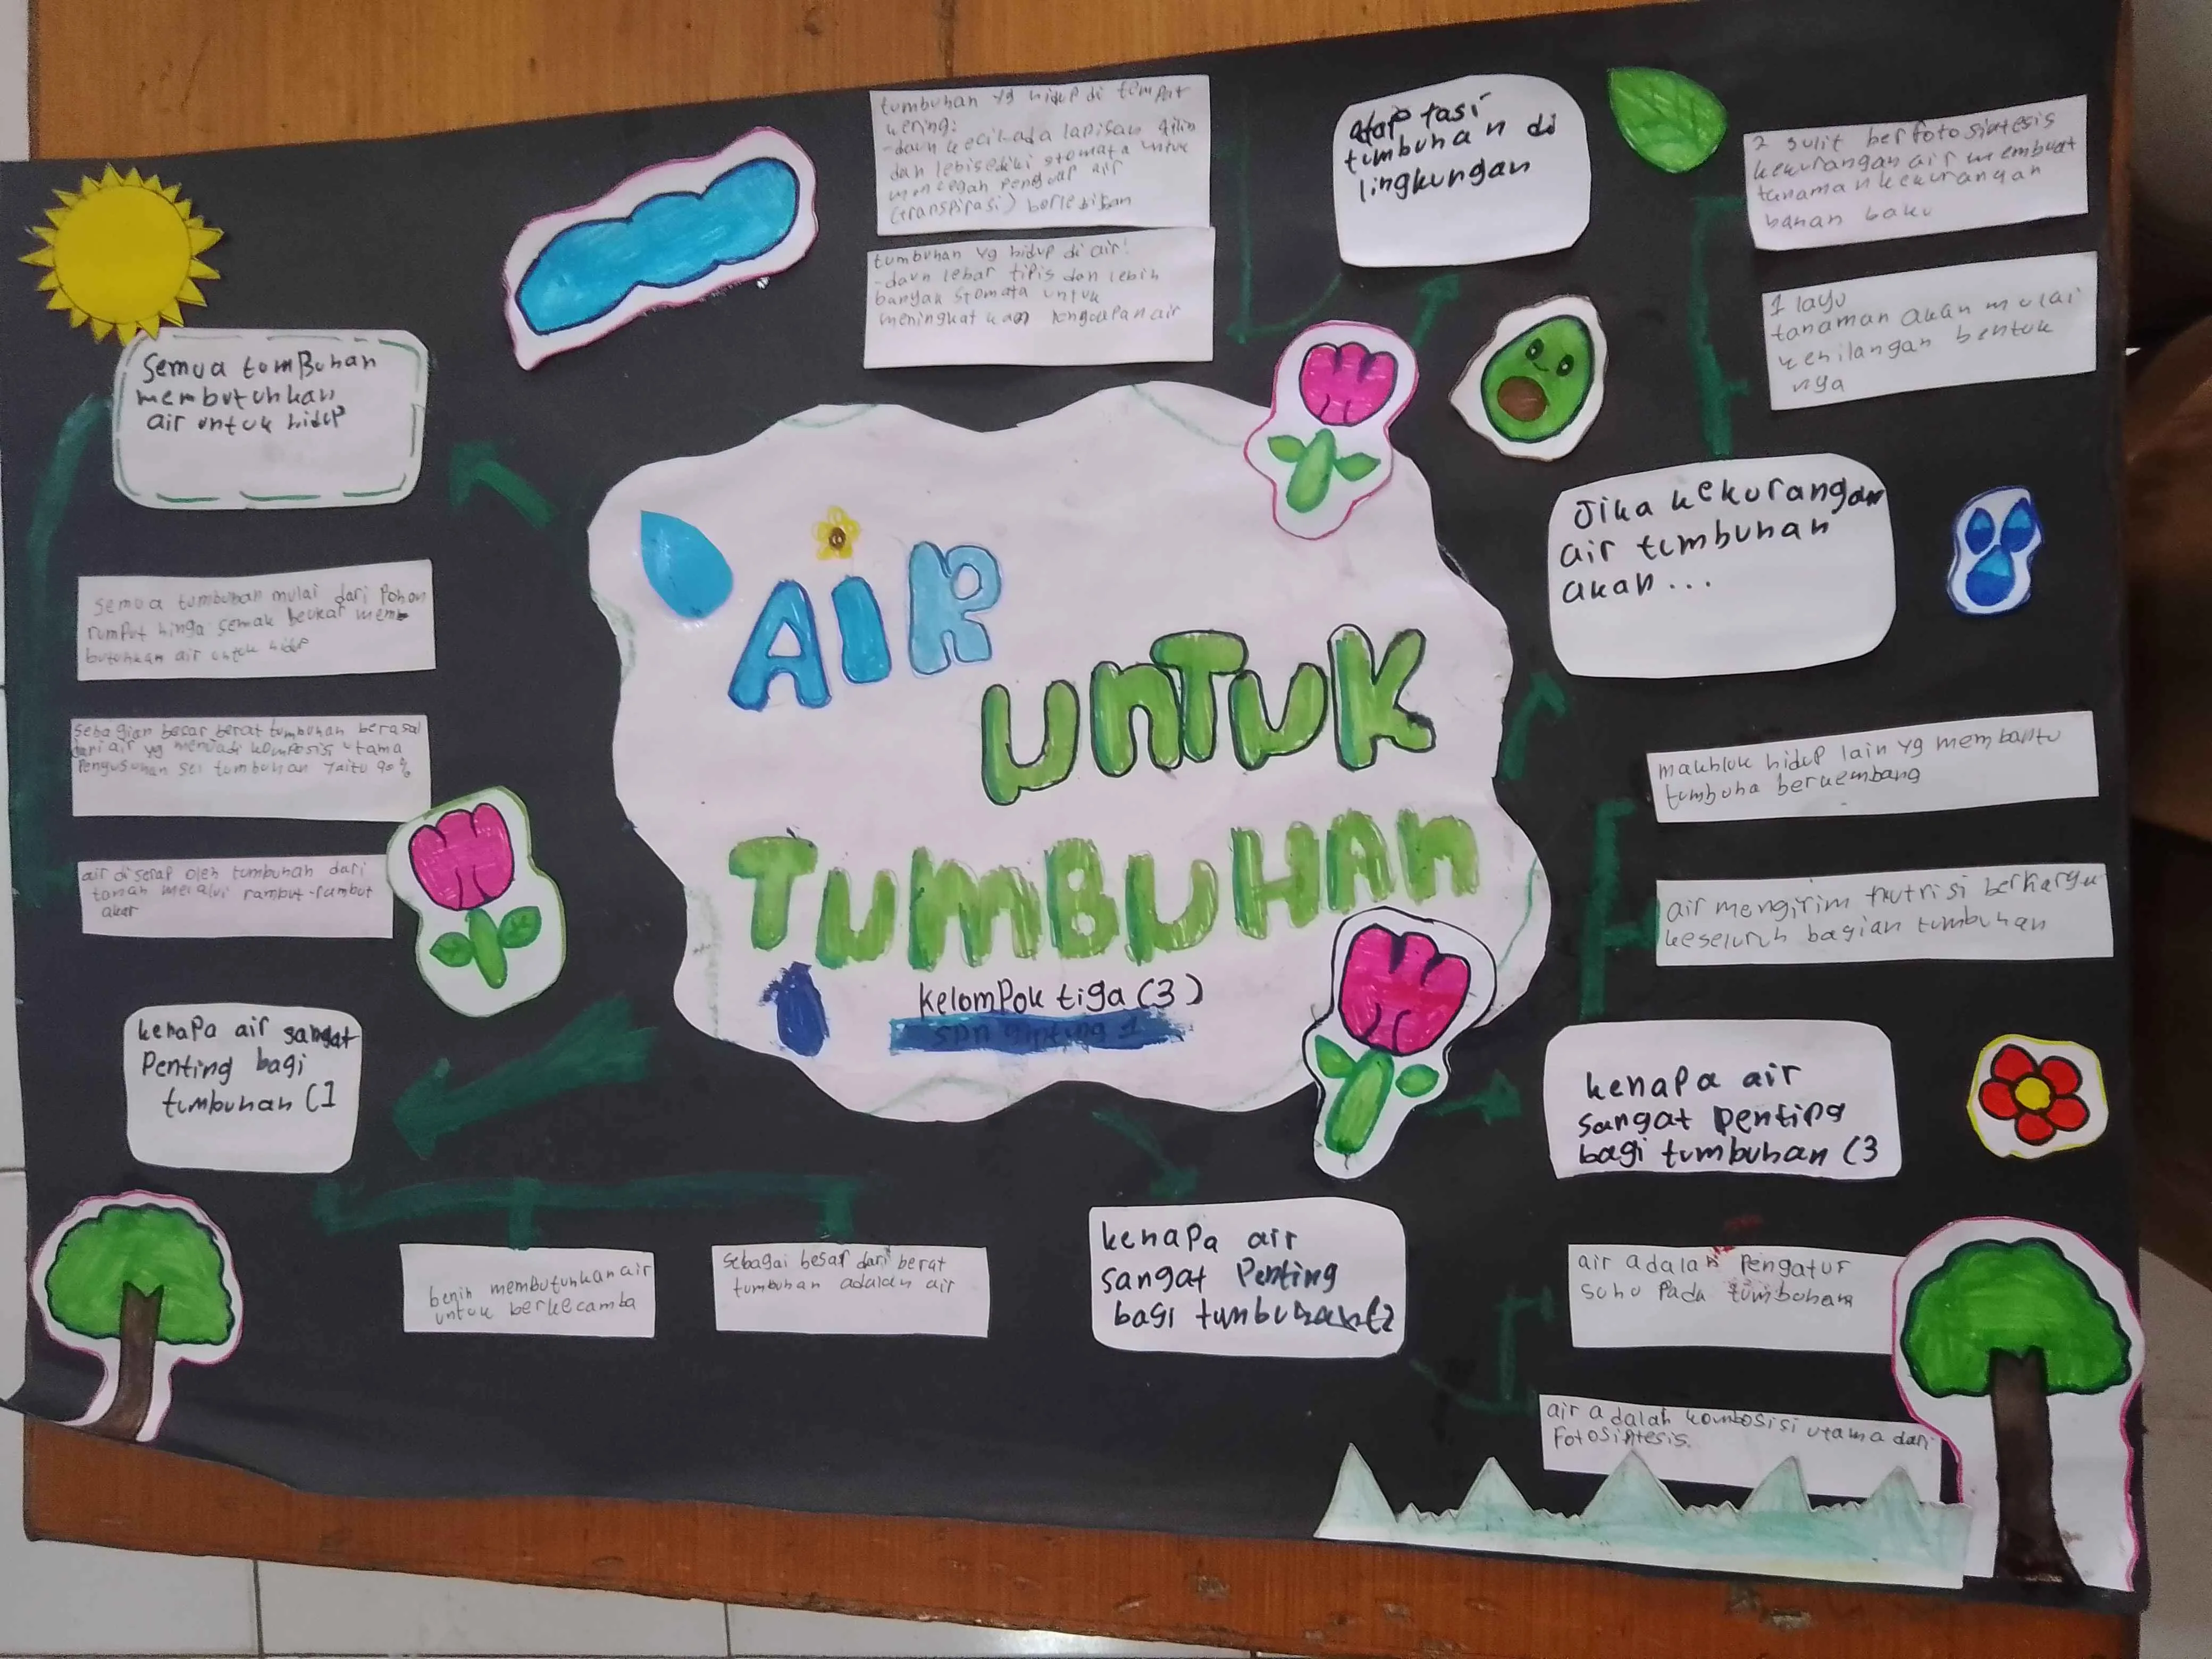 AIR
UNTUK
TUMBUHAN
kelompok tiga (3)
semua tumBuhan
membutuhkan
air untuk hidup
semua tumbuhan mulai dari Pohon
rumput hinga semak beukar mem
butuhkan air untuk hidup
sebagian besar berat tumbuhan berasal
dari air yg menjadi komposisi utama
Pengusunan sel tumbuhan yaitu 90%
air diserap oleh tumbuhan dari
tanah melalui rambut-rambut
akar
kenapa air sangat
Penting bagi
tumbuhan (1
benih membutuhkan air
untuk berkecamba
sebagai besar dari berat
tumbuhan adalah air
kenapa air
sangat Penting
bagi tumbuhan (2
air adalah Pengatur
suhu Pada tumbuhan
air adalah kombosisi utama dari
Fotosintesis.
kenapa air
sangat penting
bagi tumbuhan (3
makhluk hidup lain yg membantu
tumbuha berkembang
air mengirim nutrisi berharga
keseluruh bagian tumbuhan
Jika kekurangan
air tumbuhan
akan...
2 sulit berfotosintesis
kekurangan air membuat
tanaman kekurangan
bahan baku
1 layu
tanaman akan mulai
kehilangan bentuk
nya
adaptasi
tumbuhan di
lingkungan
tumbuhan yg hidup di tempat
kering:
-daun kecil ada lapisan lilin
dan lebi sedikit stomata untuk
mencegah penguap air
(transpirasi) berlebihan
tumbuhan yg hidup di air!
-daun lebar tipis dan lebih
banyak stomata untuk
meningkatkan pengoapan air